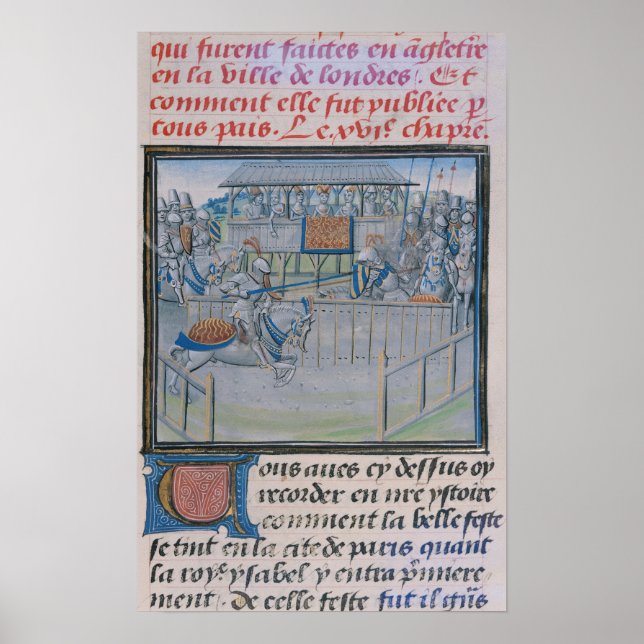 qui furent faictes en ãgletĩre
en la ville de londres. Et
comment elle fut publiee p̃
tous pais. Le. xviᵉ. chapr̃e.
Vous aues cy dessus oy
recorder en nr̃e ystoire
comment la belle feste
se tint en la cite de paris quant
la royᵉ. ysabel y entra p̃miere
ment. de celle feste fut il